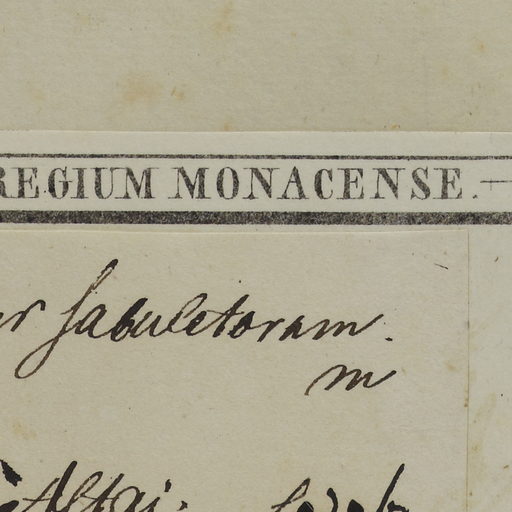 REGIUM MONACENSE.
er sabuletorum.
m
Altai. Ledeb